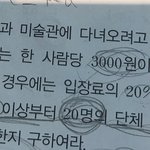 과 미술관에 다녀오려고
는 한 사람당 3000원이
경우에는 입장료의 20%
이상부터 20명의 단체
한지 구하여라.